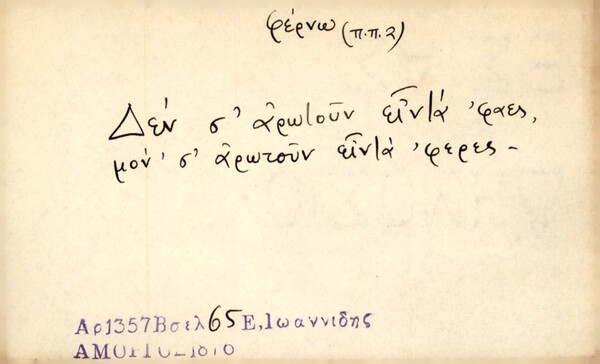 φέρνω (π.π.2)
Δέν σ' ἀρωτοῦν εἶντά 'φαες,
μόν' σ' ἀρωτοῦν εἶντά 'φερες -
Αρ1357Βσελ65Ε,Ιωαννιδης
ΑΜΟΡΓΟΣ1876